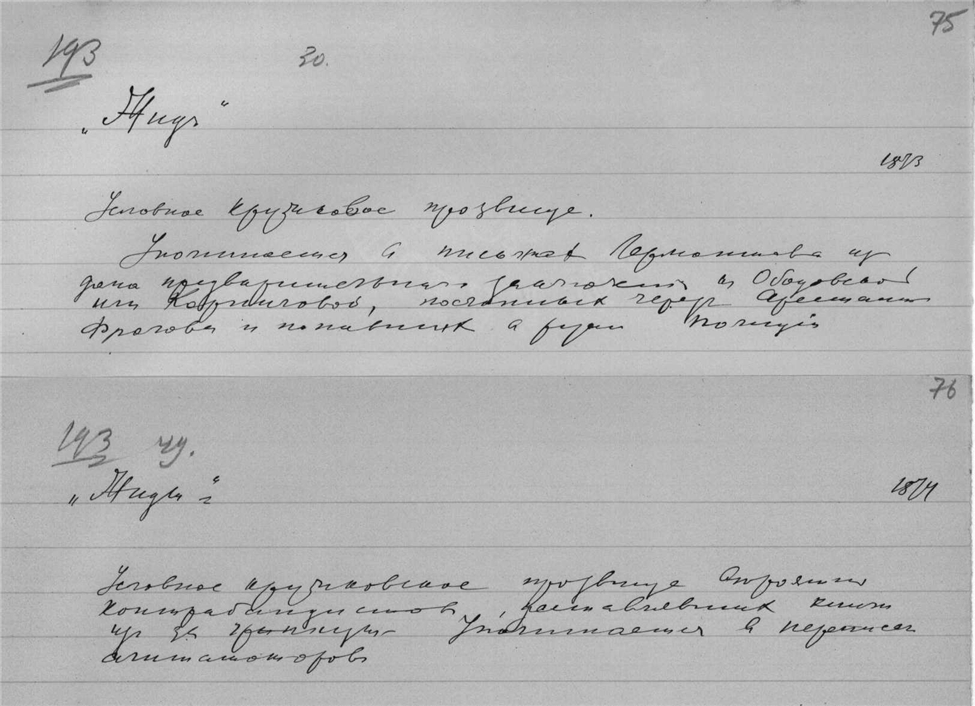 75
193
30.
„Жидъ“
1873
Условное кружковое прозвище.
Упоминается в письмах Чермошнцева из
дома предварительного заключения к Ободовской
или Корниловой, посланных через арестанта
Фролова и попавших в руки полиции
76
193 чд.
„Жиды“
1874
Условное кружковское прозвище
контрабандистов, доставлявших книги
из за границы Упоминается в переписке
агитаторов